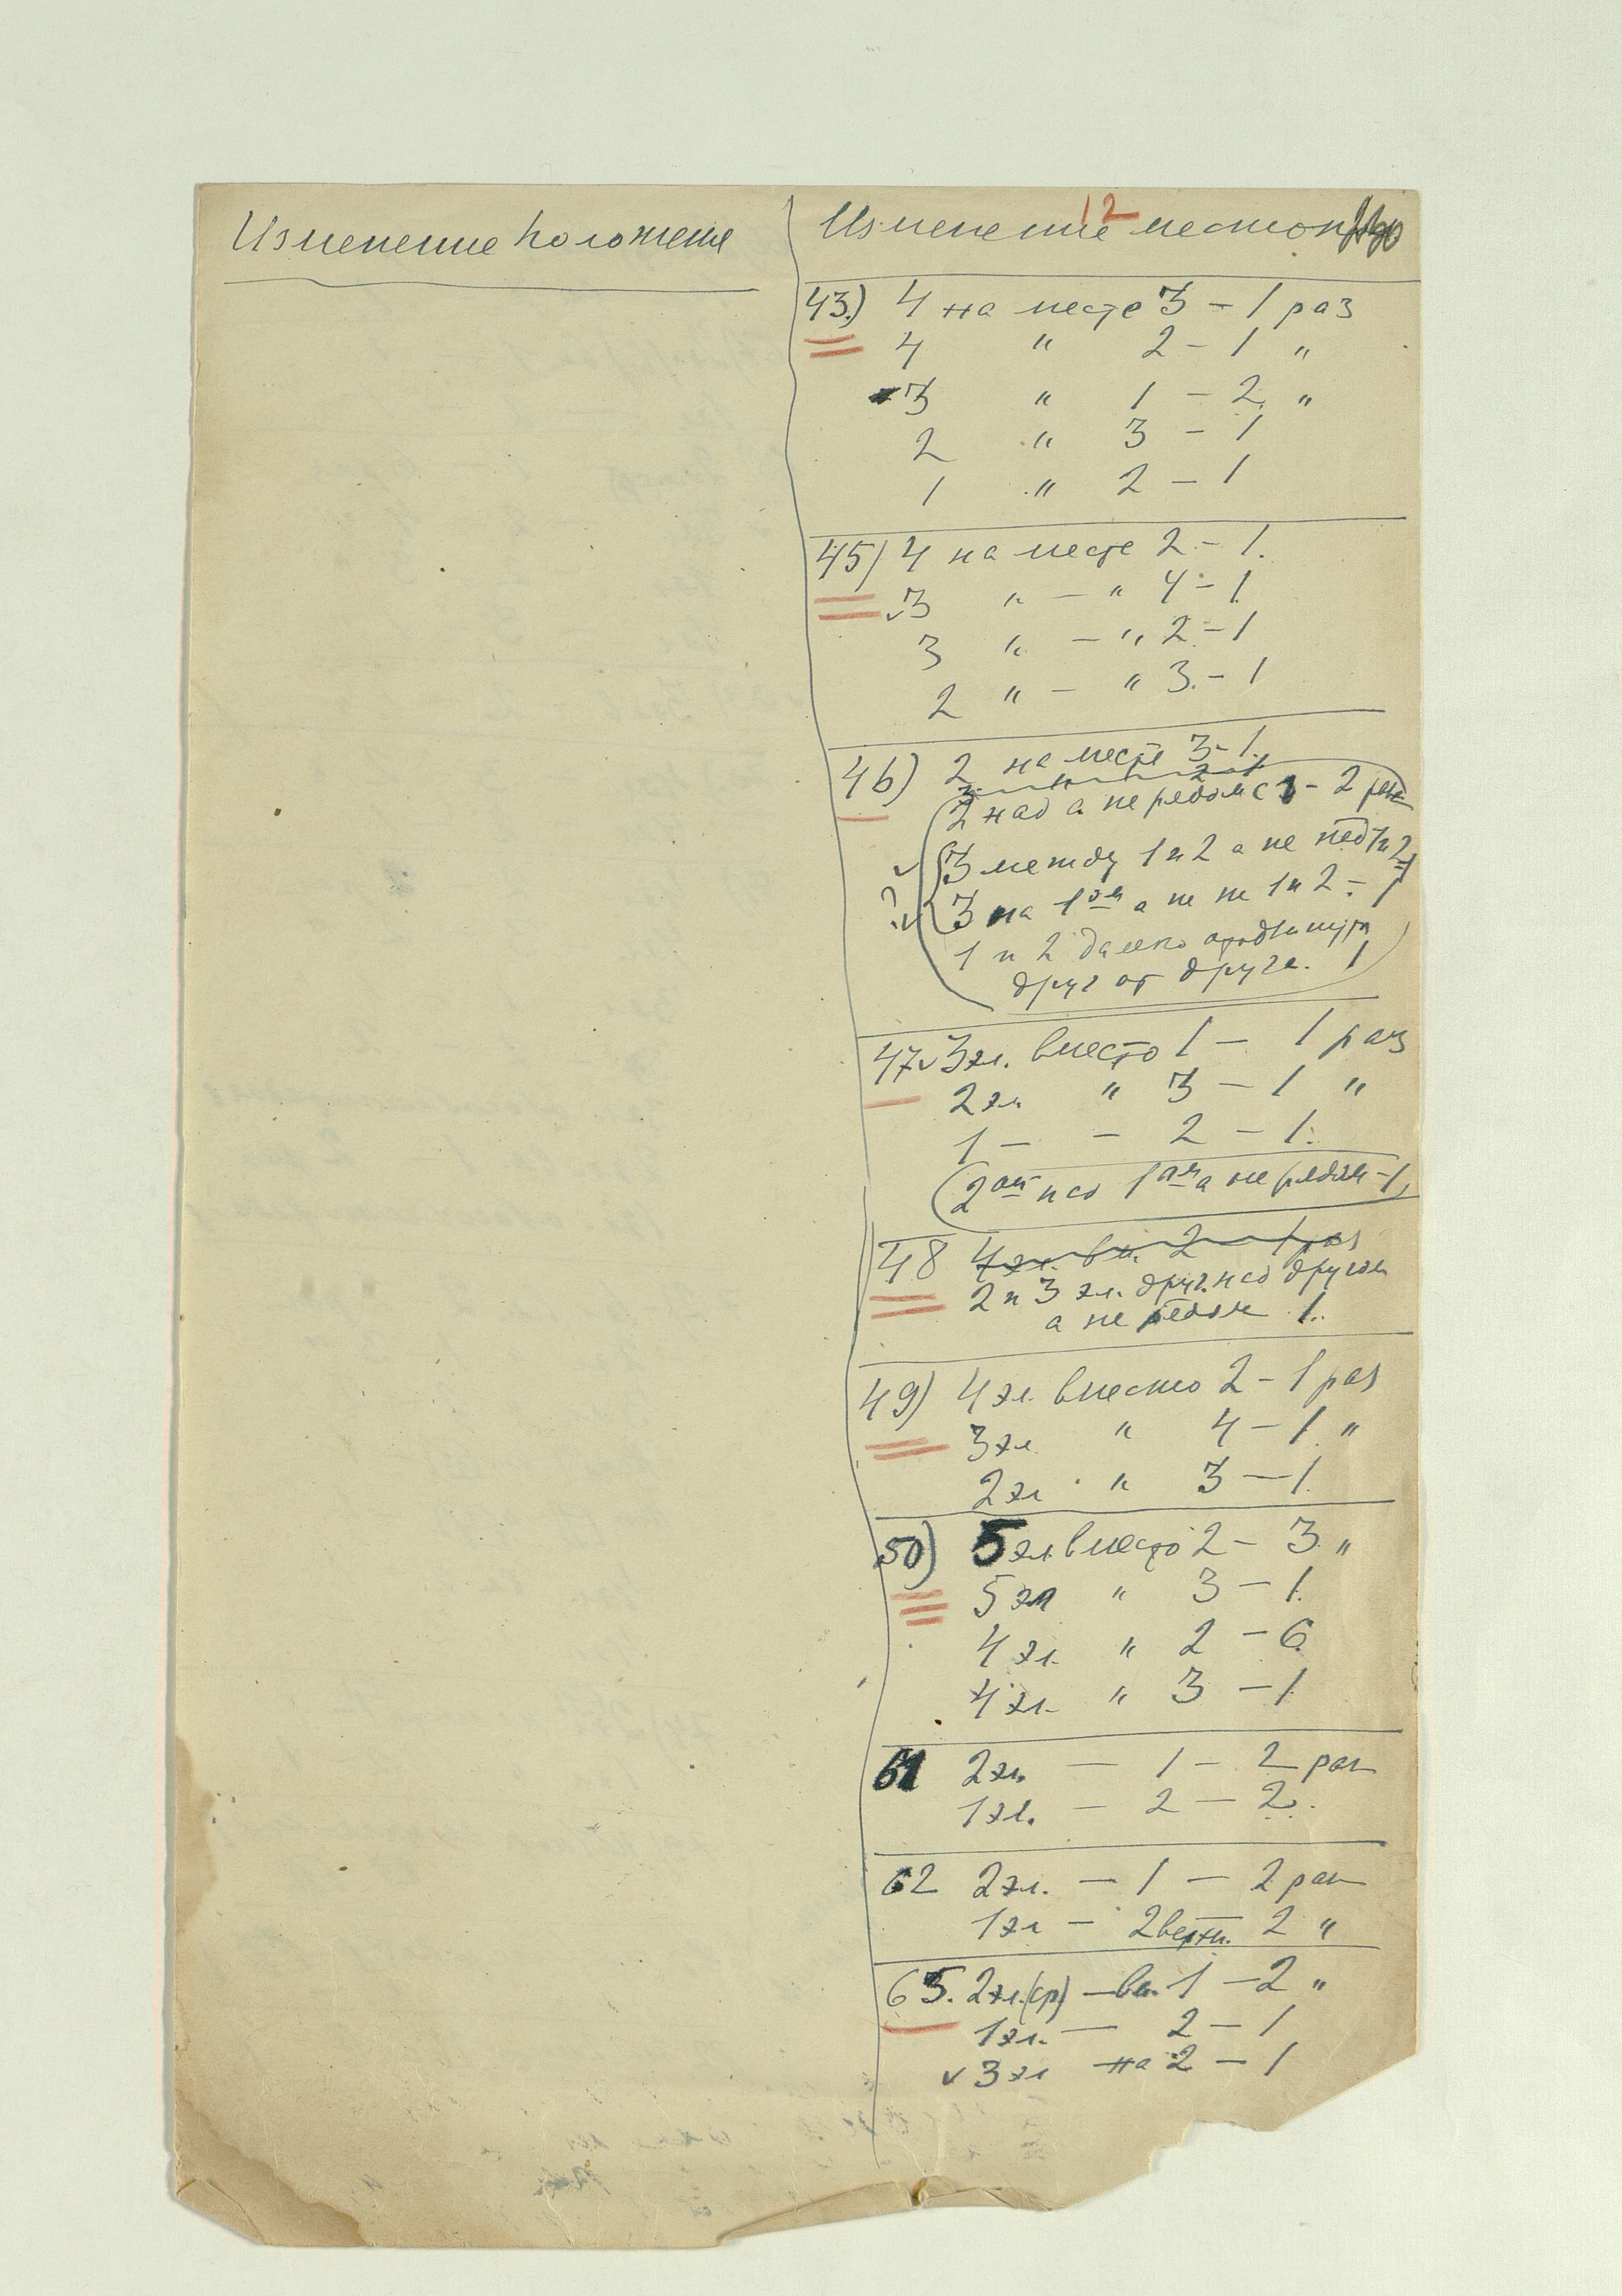 Изменение положения
12
Изменение
43) 4 на месте 3 – 1 раз
4 " 2 – 1 "
3 " 1 – 2 "
2 " 3 – 1
1 " 2 – 1
45) 4 на месте 2 – 1.
3 " – " 4 – 1
3 " – " 2 – 1
2 " – " 3 – 1
46) 2 на месте 3 – 1.
2 над а не рядом с 1 – 2 раза
3 между 1 и 2 а не под 1 и 2 – 1
3 на 1ом а не на 1 и 2 – 1
1 и 2 далеко
друг от друга. 1
47 3 эл. вместо 1 – 1 раз
2 эл. " 3 – 1 "
1 – – 2 – 1.
2ой над 1ым а не рядом – 1
48 4 эл. вм. 2 – 1 раз
2 и 3 эл. друг над другом
а не рядом 1.
49) 4 эл. вместо 2 – 1 раз
3 эл. " 4 – 1 "
2 эл " 3 – 1
50) 5 эл. вместо 2 – 3 "
5 эл " 3 – 1
4 эл. " 2 – 6
4 эл. " 3 – 1
61 2 эл. – 1 – 2 раза
1 эл. – 2 – 2.
62 2 эл. – 1 – 2 раза
1 эл – 2 верхн. 2 "
65. 2 эл. (ср) – вм. 1 – 2 "
1 эл. – 2 – 1
3 эл на 2 – 1